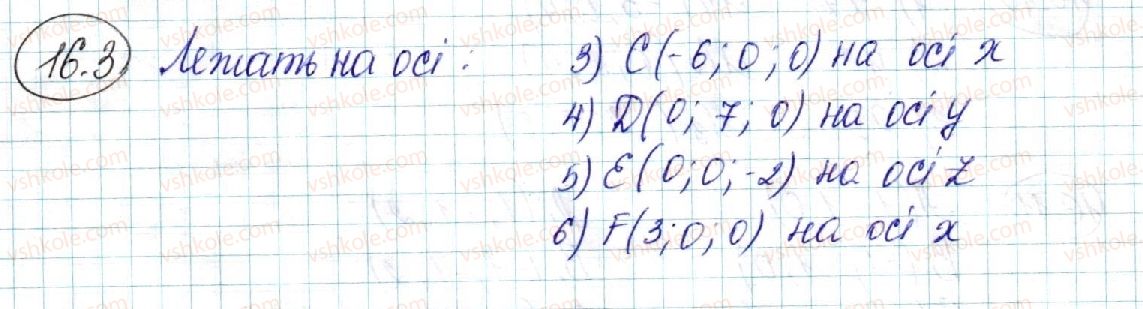 16.3 Лежать на осі: 3) C(-6; 0; 0) на осі x
4) D(0; 7; 0) на осі y
5) E(0; 0; -2) на осі z
6) F(3; 0; 0) на осі x